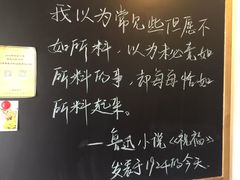 我以为常见些但愿不
如所料，以为必竟如
所料的事，却每每恰如
所料起来。
——鲁迅小说《祝福》
发表于1924的今天